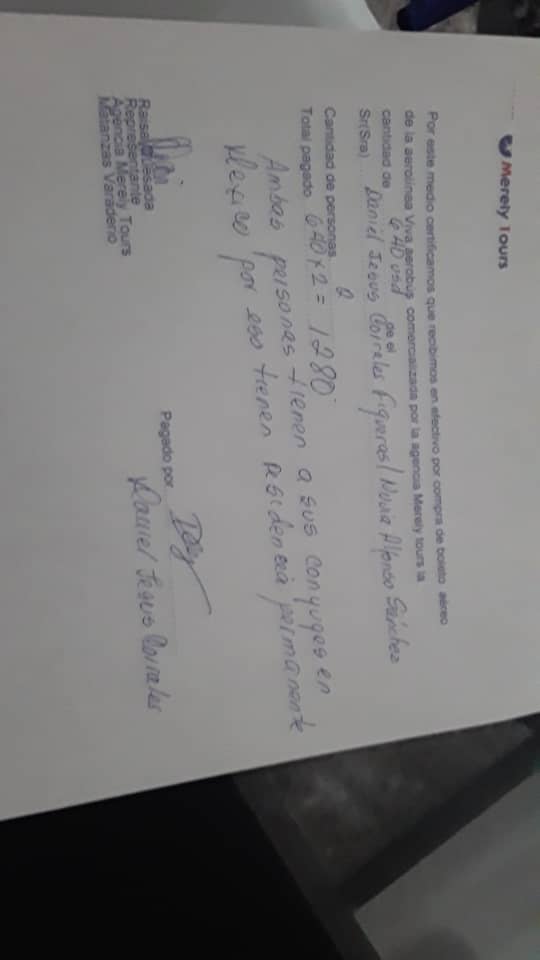 Merely Tours
Por este medio certificamos que recibimos en efectivo por compra de boleto aéreo
de la aerolínea Viva aerobus comercializada por la agencia Merely tours la
cantidad de 640 usd de el
Sr(Sra) Daniel Jesus Corrales Figueras / Nuvia Alfonso Sánchez
Cantidad de personas 2
Total pagado 640 x 2 = 1280
Ambas personas tienen a sus conyuges en
Mexico por eso tienen residencia permanente
Pagado por
Daniel Jesus Corrales
Representante
Agencia Merely Tours
Matanzas Varadero